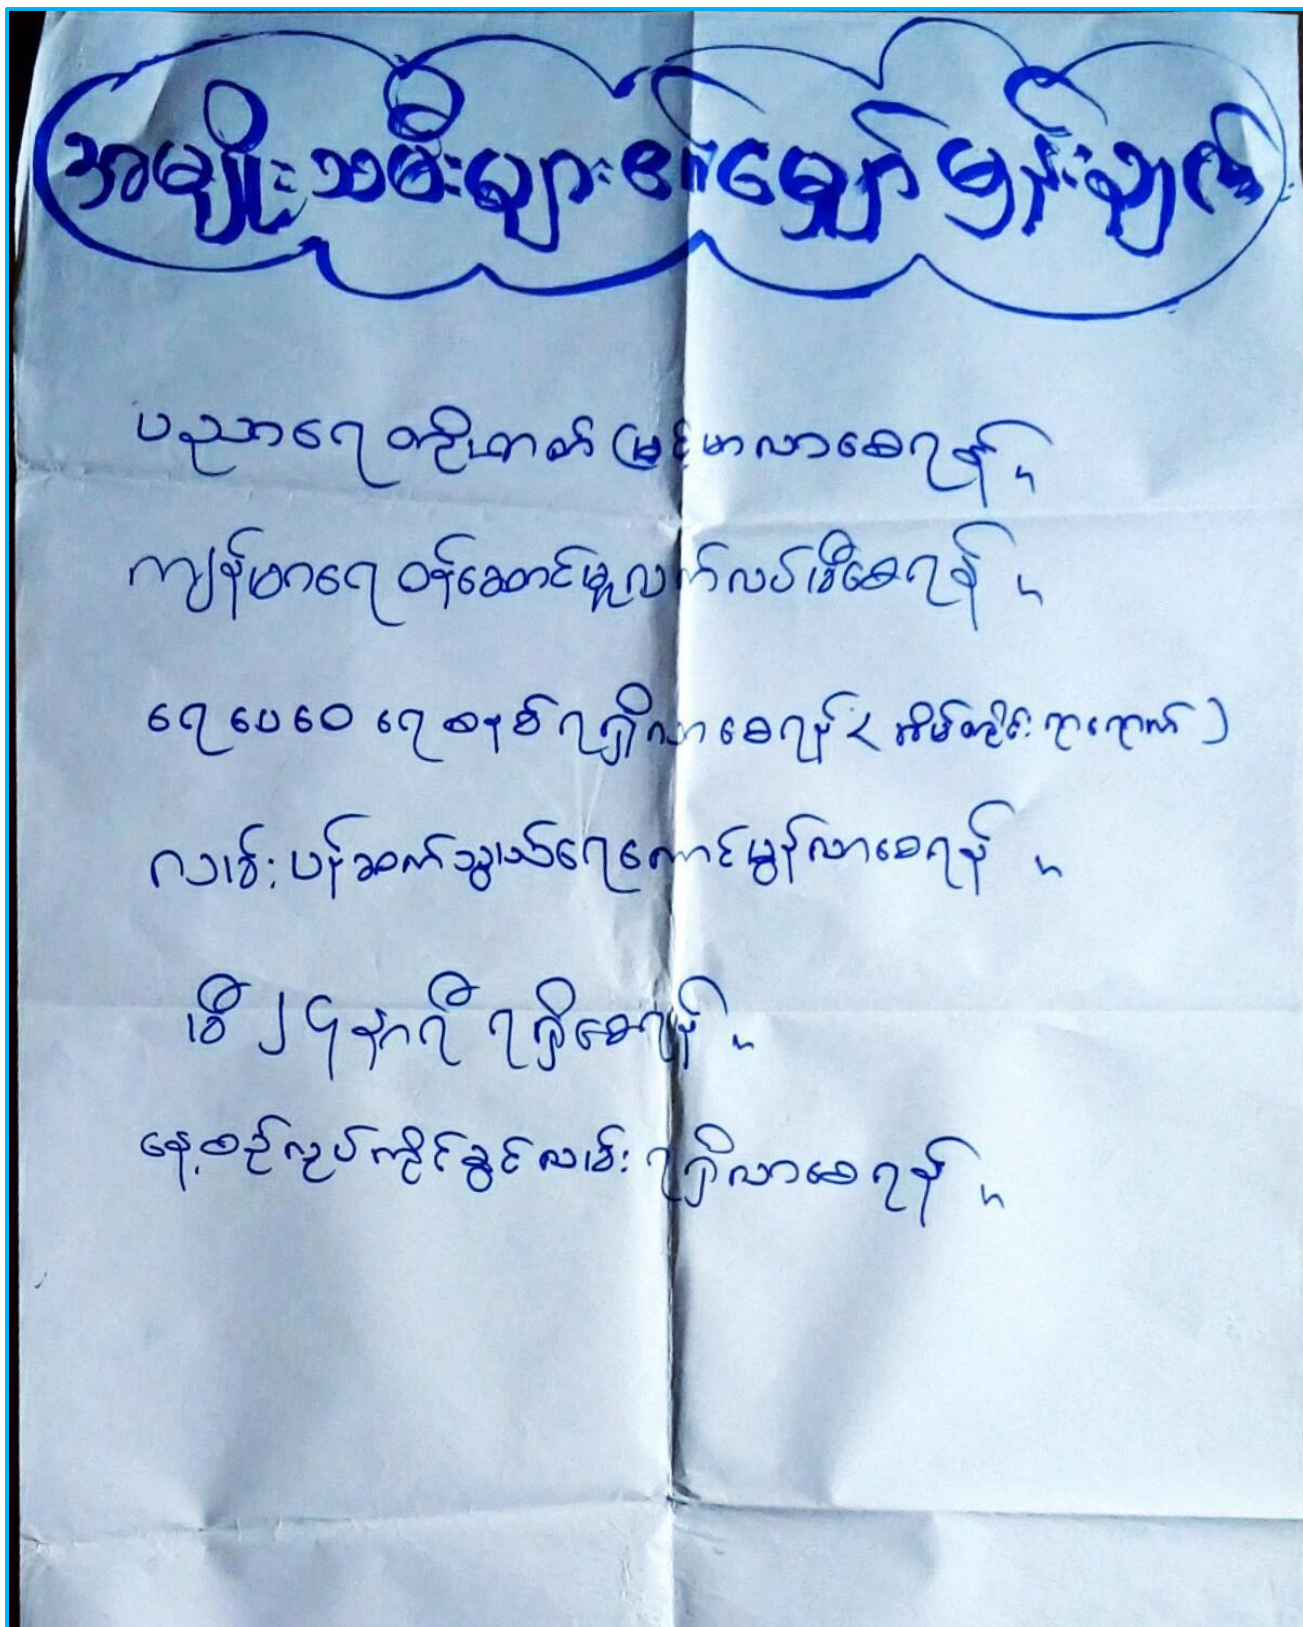 အမျိုးသမီးများ၏မျှော်မှန်းချက်
ပညာရေ တိုးတတ်မြင့်မာလာစေရန်။
ကျန်မာရေ ဝန်ဆောင်မှုလက်လပ်မီစေရန်။
ရေပေဝေ ရေစနစ်ရရှိလာစေရန် (အိမ်တိုင်းရာရောက်)
လမ်းပန်ဆက်သွယ်ရေကောင်မွန်လာစေရန်။
မီ ၂၄ နာရီ ရရှိစေရန်။
နေ့စဉ်လုပ်ကိုင်ခွင်လမ်း ရရှိလာစေရန်။